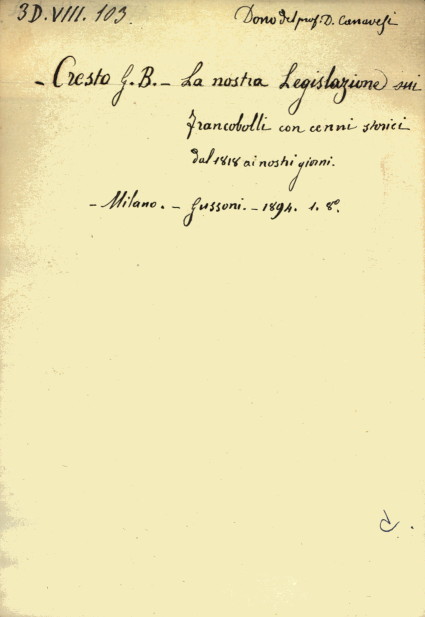 3D.VIII.103.
Dono del prof. D. Canavesi
- Cresto G.B. - La nostra Legislazione sui
francobolli con cenni storici
dal 1818 ai nostri giorni.
- Milano. - Gussoni. - 1894. 1. 8º.